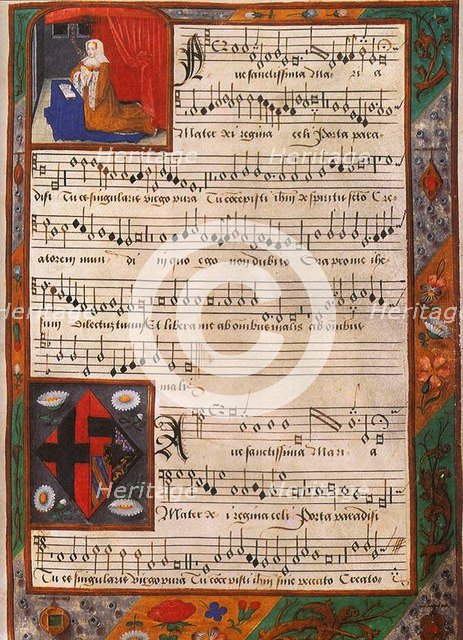 Ave sanctissima Mari a
Mater dei regina celi Porta para
disi Tu es singularis virgo pura Tu
Cre
atorem mun di in quo ego non dubito Ora pro me ihe
sum dilectum tuum Et libera me ab omnibus malis ab omnibus
malis
Ave sanctissima Mari a
Mater de i regina celi Porta paradisi
Tu es singularis virgo pura Tu concepisti ihm sine peccato Creato
Heritage
Heritage
Heritage
Heritage
Heritage
Heritage